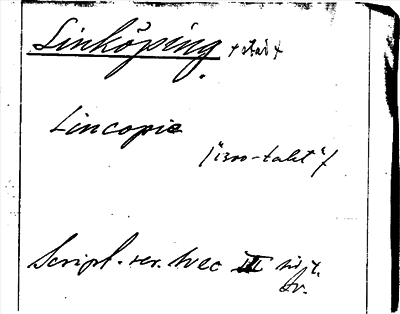 Linköping + stad +
Lincopie
/"1300-talet"/
Script. rer. svec III sid